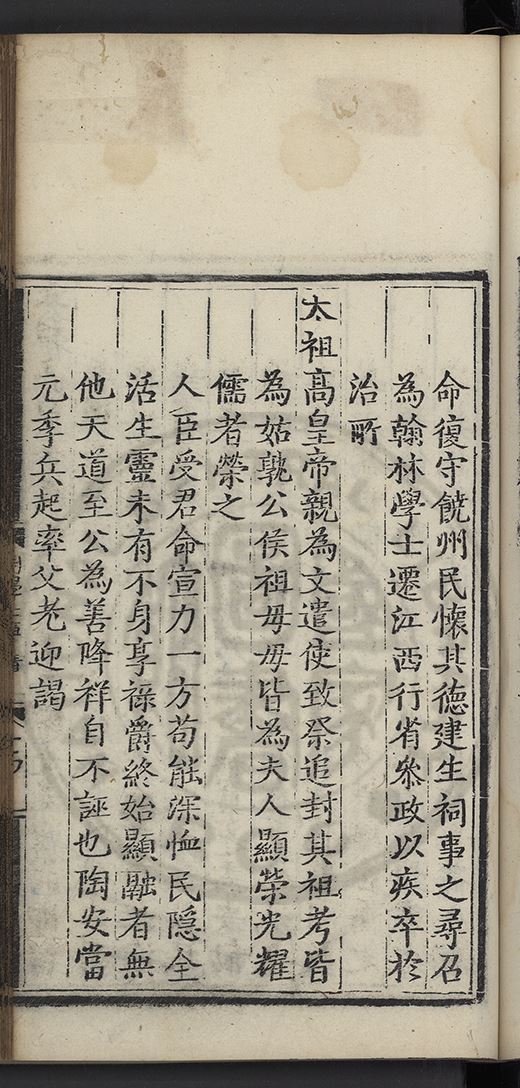 命復守饒州民懷其徳建生祠事之尋召
為翰林學士遷江西行省叅政以疾卒於
治所
太祖高皇帝親為文遣使致祭追封其祖考皆
為姑孰公侯祖母母皆為夫人顯榮光耀
儒者榮之
人臣受君命宣力一方苟能深恤民隠全
活生靈未有不身享禄爵終始顯融者無
他天道至公為善降祥自不誣也陶安當
元季兵起率父老迎謁